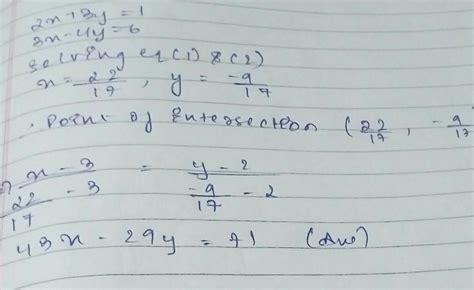 2x + 3y = 1
3x - 4y = 6
solving eq (1) & (2)
x = 22/17 , y = -9/17
. Point of Intersection (22/17 , -9/17
x - 3 / 22/17 - 3 = y - 2 / -9/17 - 2
43x - 29y = 71 (Ans)